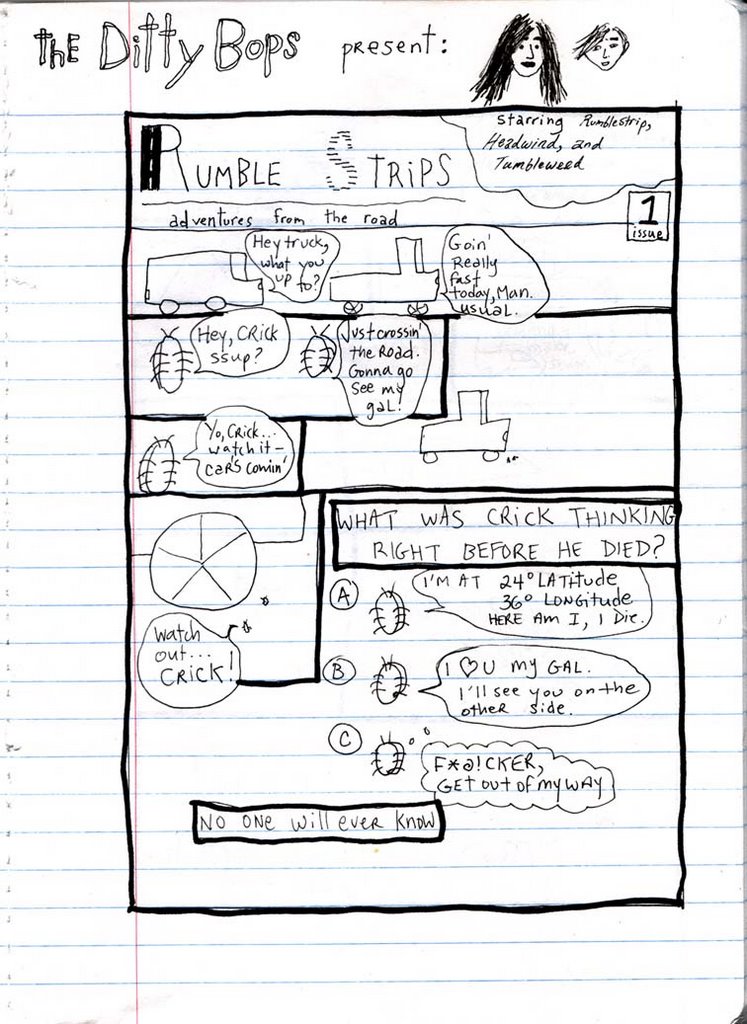 the Ditty Bops present:
starring Rumblestrip,
Headwind, and
Tumbleweed
RUMBLE STRIPS
adventures from the road
1
issue
Hey truck,
what you
up to?
Goin'
Really
fast
today, Man.
usual.
Hey, CRick
ssup?
Just crossin'
the Road.
Gonna go
see my
gal!
Yo, CRick...
watch it-
caRs comin'
Watch
out...
CRICK!
WHAT WAS CRICK THINKING
RIGHT BEFORE HE DIED?
A
I'M AT 24° LATitude
36° LONGitude
HERE Am I, I Die.
B
I ♡ U my GAL.
I'll see you on the
other side.
C
F*@!CKER,
GET OUT OF MY WAY
NO ONE will ever know